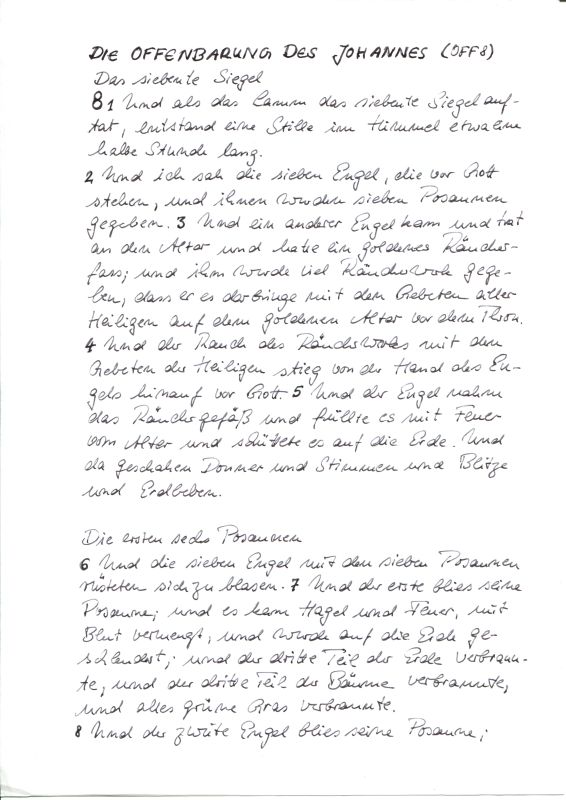 DIE OFFENBARUNG DES JOHANNES (OFF 8)
Das siebente Siegel
8 1 Und als das Lamm das siebente Siegel auf-
tat, entstand eine Stille im Himmel etwa eine
halbe Stunde lang.
2 Und ich sah die sieben Engel, die vor Gott
stehen, und ihnen wurden sieben Posaunen
gegeben. 3 Und ein anderer Engel kam und trat
an den Altar und hatte ein goldenes Räucher-
fass; und ihm wurde viel Räucherwerk gege-
ben, dass er es darbringe mit den Gebeten aller
Heiligen auf dem goldenen Altar vor dem Thron.
4 Und der Rauch des Räucherwerks mit den
Gebeten der Heiligen stieg von der Hand des En-
gels hinauf vor Gott. 5 Und der Engel nahm
das Räuchergefäß und füllte es mit Feuer
vom Altar und schüttete es auf die Erde. Und
da geschahen Donner und Stimmen und Blitze
und Erdbeben.
Die ersten sechs Posaunen
6 Und die sieben Engel mit den sieben Posaunen
rüsteten sich zu blasen. 7 Und der erste blies seine
Posaune; und es kam Hagel und Feuer, mit
Blut vermengt, und wurde auf die Erde ge-
schleudert; und der dritte Teil der Erde verbrann-
te, und der dritte Teil der Bäume verbrannte,
und alles grüne Gras verbrannte.
8 Und der zweite Engel blies seine Posaune;